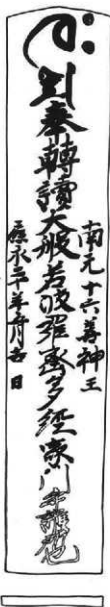 南无十六善神王
奉轉讀大般若波羅蜜多經家門
應永二十年 月吉日